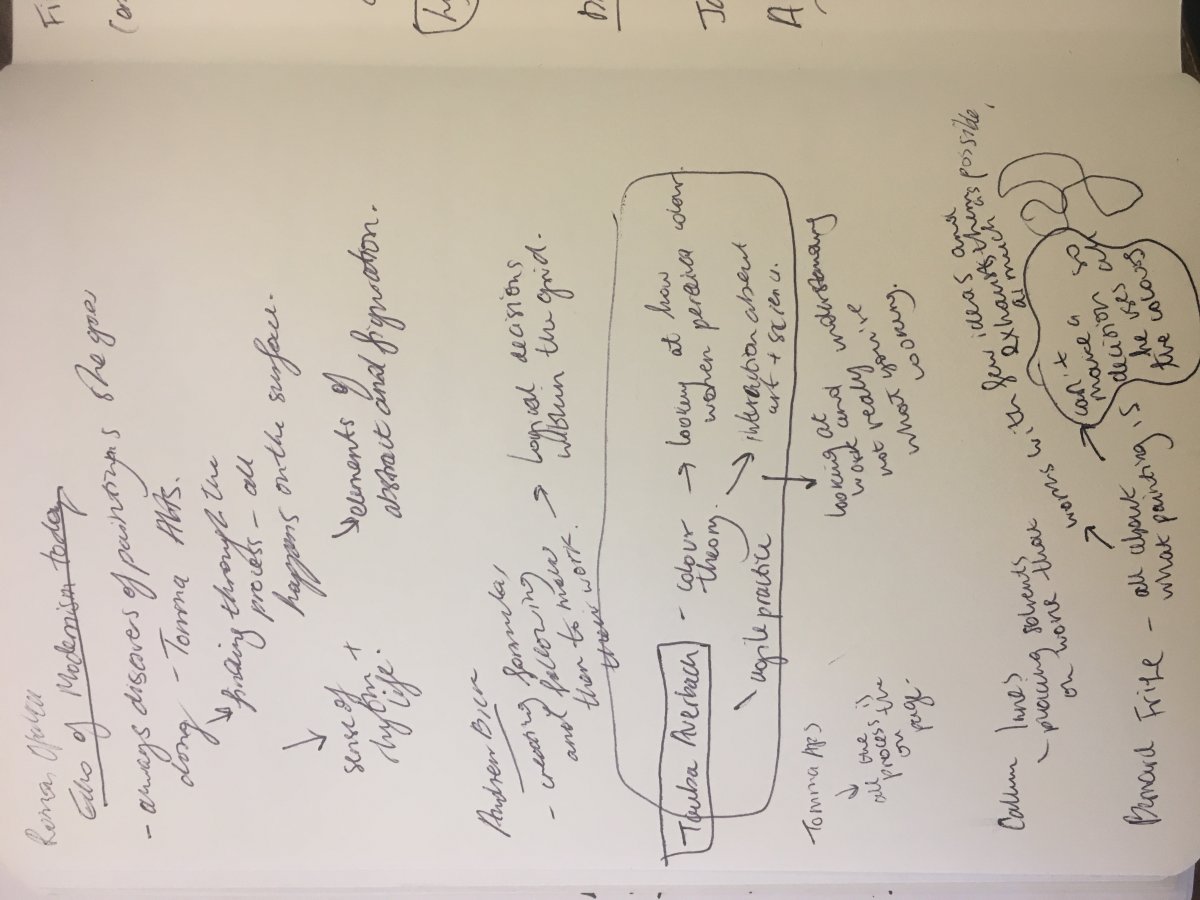 Roman Opalka
Echo of Modernism today
- always discovers of paintings she goes
along - Tomma Abts.
finding through the
process - all
happens on the surface.
sense of
rhythm +
life.
elements of
abstract and figuration.
- creating formula,
and following
then to make
their work.
→ Logical decisions
within the grid.
Tauba Auerbach
- colour
theory.
→ looking at how
women perceive colour.
→ interaction about
art + science.
agile practice
looking at
work and understanding
not really
what you're
looking.
Tomma Abs
all the
process is
on the
page.
Callum Innes
- placing solvents
on work that
works with few ideas and
exhausts them as
as much possible,
Bernard Frize - all about
what painting is
can't
make a
decision so
he uses all
the colours
Fi
Co
Jo
A